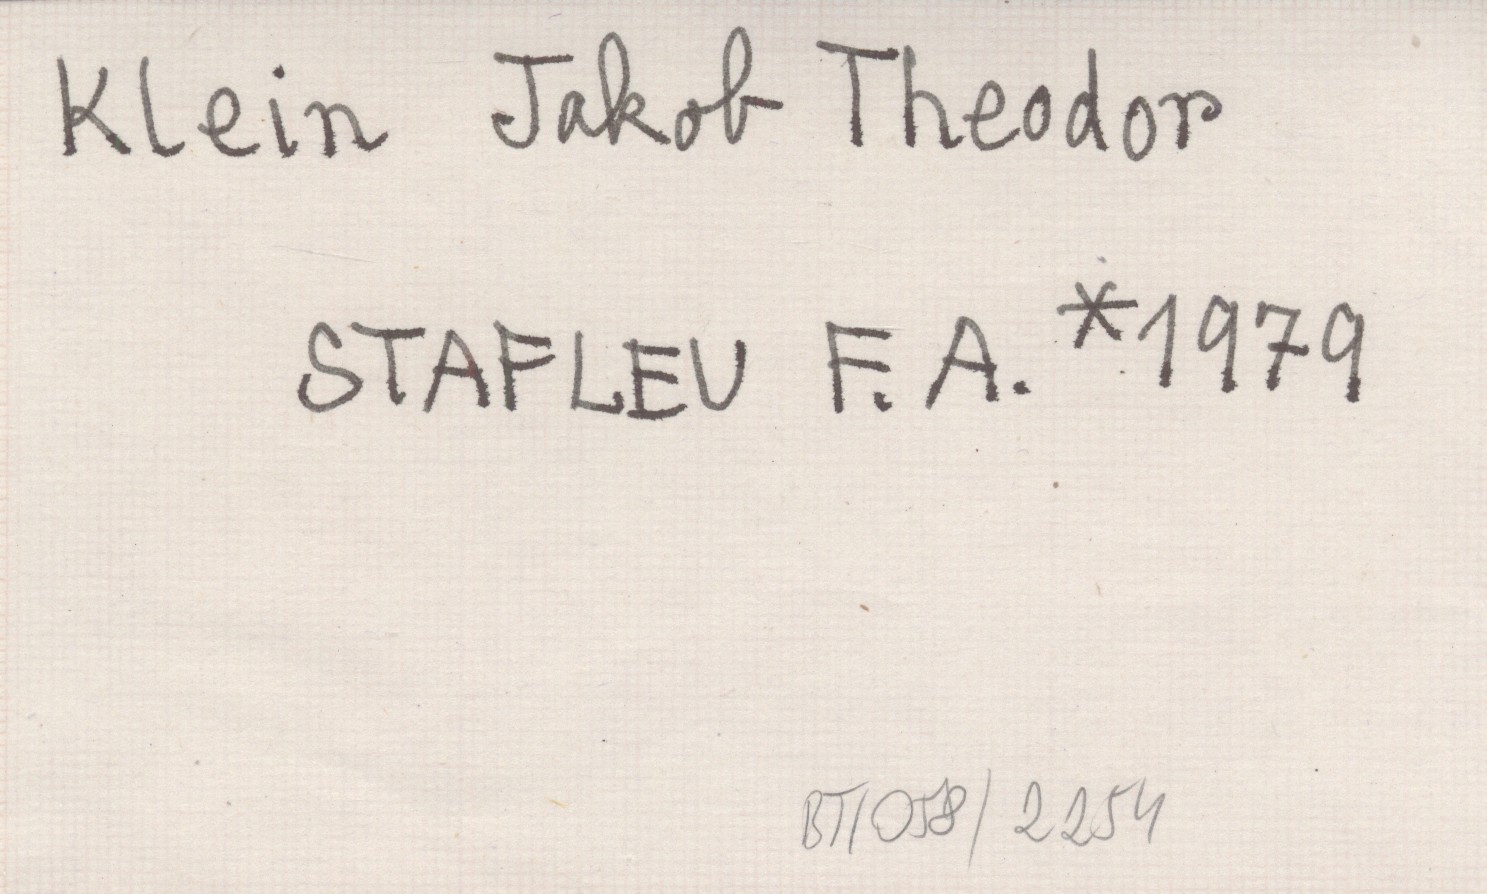 Klein Jakob Theodor
STAFLEU F. A. *1979
BT/058/2254